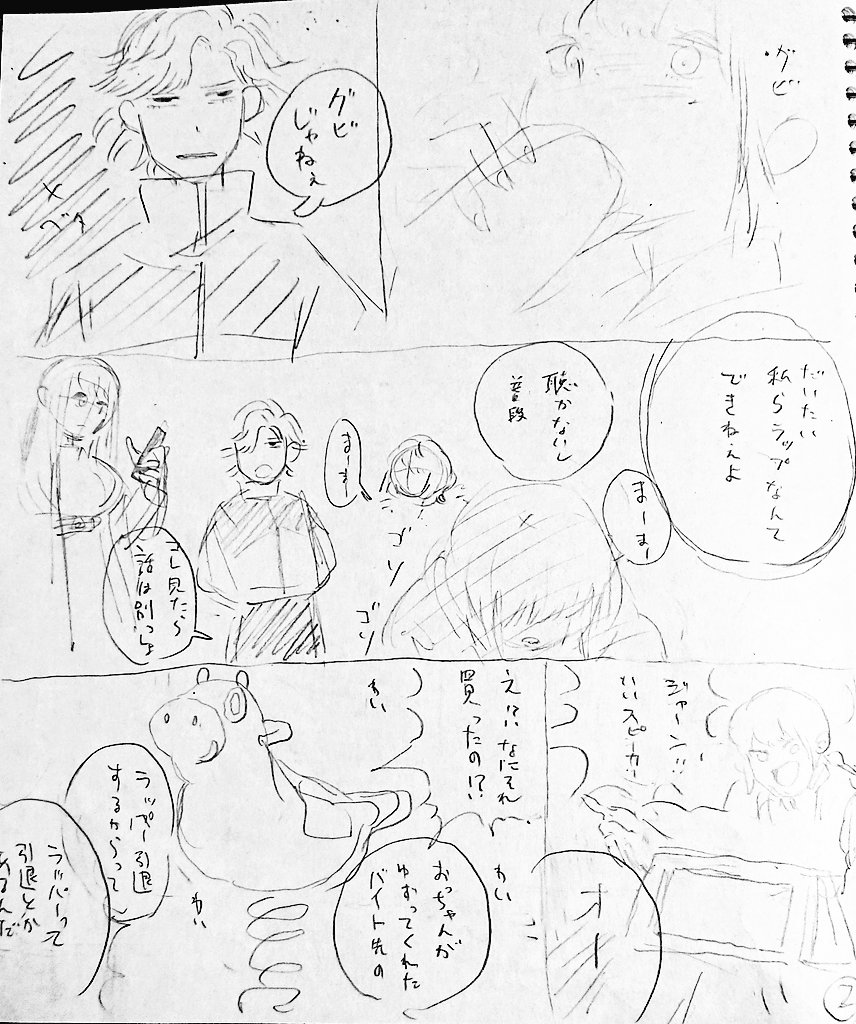 グビ
グビ
じゃねぇ
×
ベタ
だいたい
私らラップなんて
できねぇよ
まーまー
聴かないし
普段
まーまー
ゴソ
ゴソ
コレ見たら
話は別っしょ
ジャーン!!
いいスピーカー
オー
え!?なにそれ
買ったの!?
わい
わい
おっちゃんが
ゆずってくれた
バイト先の
わい
ラッパー引退
するからって
ラッパーって
引退とか
あるんだ
2